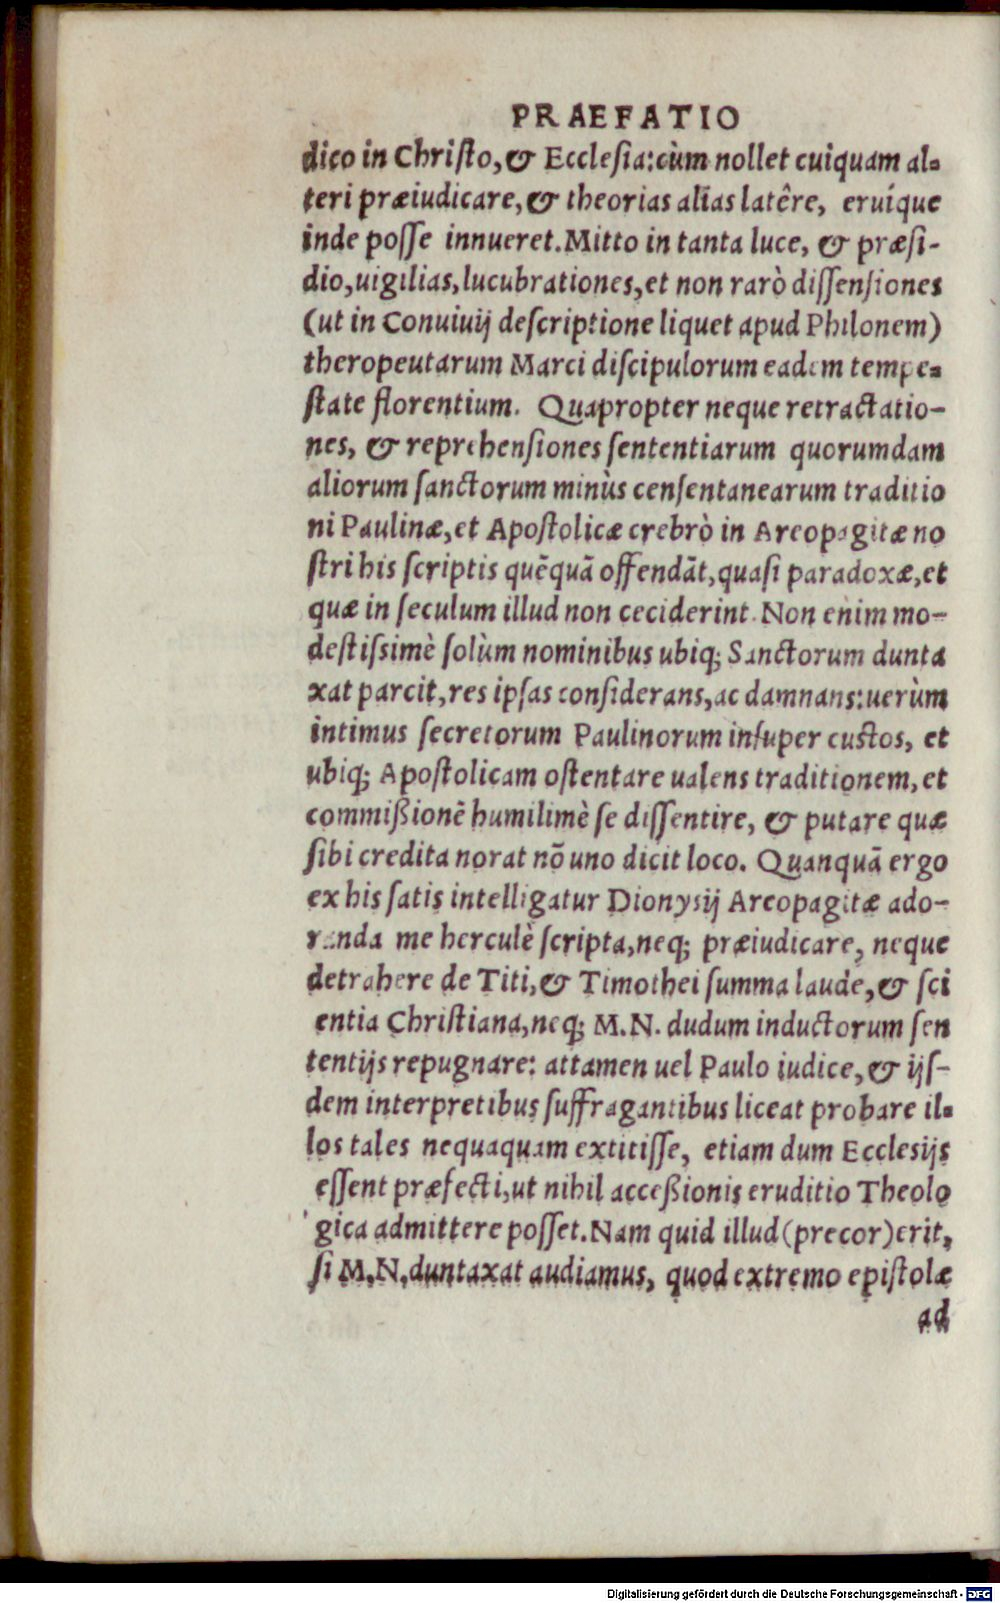 PRAEFATIO
dico in Christo, & Ecclesia: cùm nollet cuiquam al-
teri præiudicare, & theorias alias latêre, eruíque
inde posse innueret. Mitto in tanta luce, & præsi-
dio, uigilias, lucubrationes, et non rarò dissensiones
(ut in Conuiuij descriptione liquet apud Philonem)
theropeutarum Marci discipulorum eadem tempe-
state florentium. Quapropter neque retractatio-
nes, & reprehensiones sententiarum quorumdam
aliorum sanctorum minùs censentanearum traditio
ni Paulinæ, et Apostolicæ crebrò in Areopagitæ no
stri his scriptis quẽquã offendãt, quasi paradoxæ, et
quæ in seculum illud non ceciderint. Non enim mo-
destissimè solùm nominibus ubiq; Sanctorum dunta
xat parcit, res ipsas considerans, ac damnans: uerùm
intimus secretorum Paulinorum insuper custos, et
ubiq; Apostolicam ostentare ualens traditionem, et
commißionẽ humilimè se dissentire, & putare quæ
sibi credita norat nõ uno dicit loco. Quanquã ergo
ex his satis intelligatur Dionysij Areopagitæ ado-
randa me herculè scripta, neq; præiudicare, neque
detrahere de Titi, & Timothei summa laude, & sci
entia Christiana, neq; M.N. dudum inductorum sen
tentijs repugnare: attamen uel Paulo iudice, & ijs-
dem interpretibus suffragantibus liceat probare il-
los tales nequaquam extitisse, etiam dum Ecclesijs
essent præfecti, ut nihil acceßionis eruditio Theolo
gica admittere posset. Nam quid illud (precor) erit,
si M.N. duntaxat audiamus, quod extremo epistolæ
ad
Digitalisierung gefördert durch die Deutsche Forschungsgemeinschaft - DFG